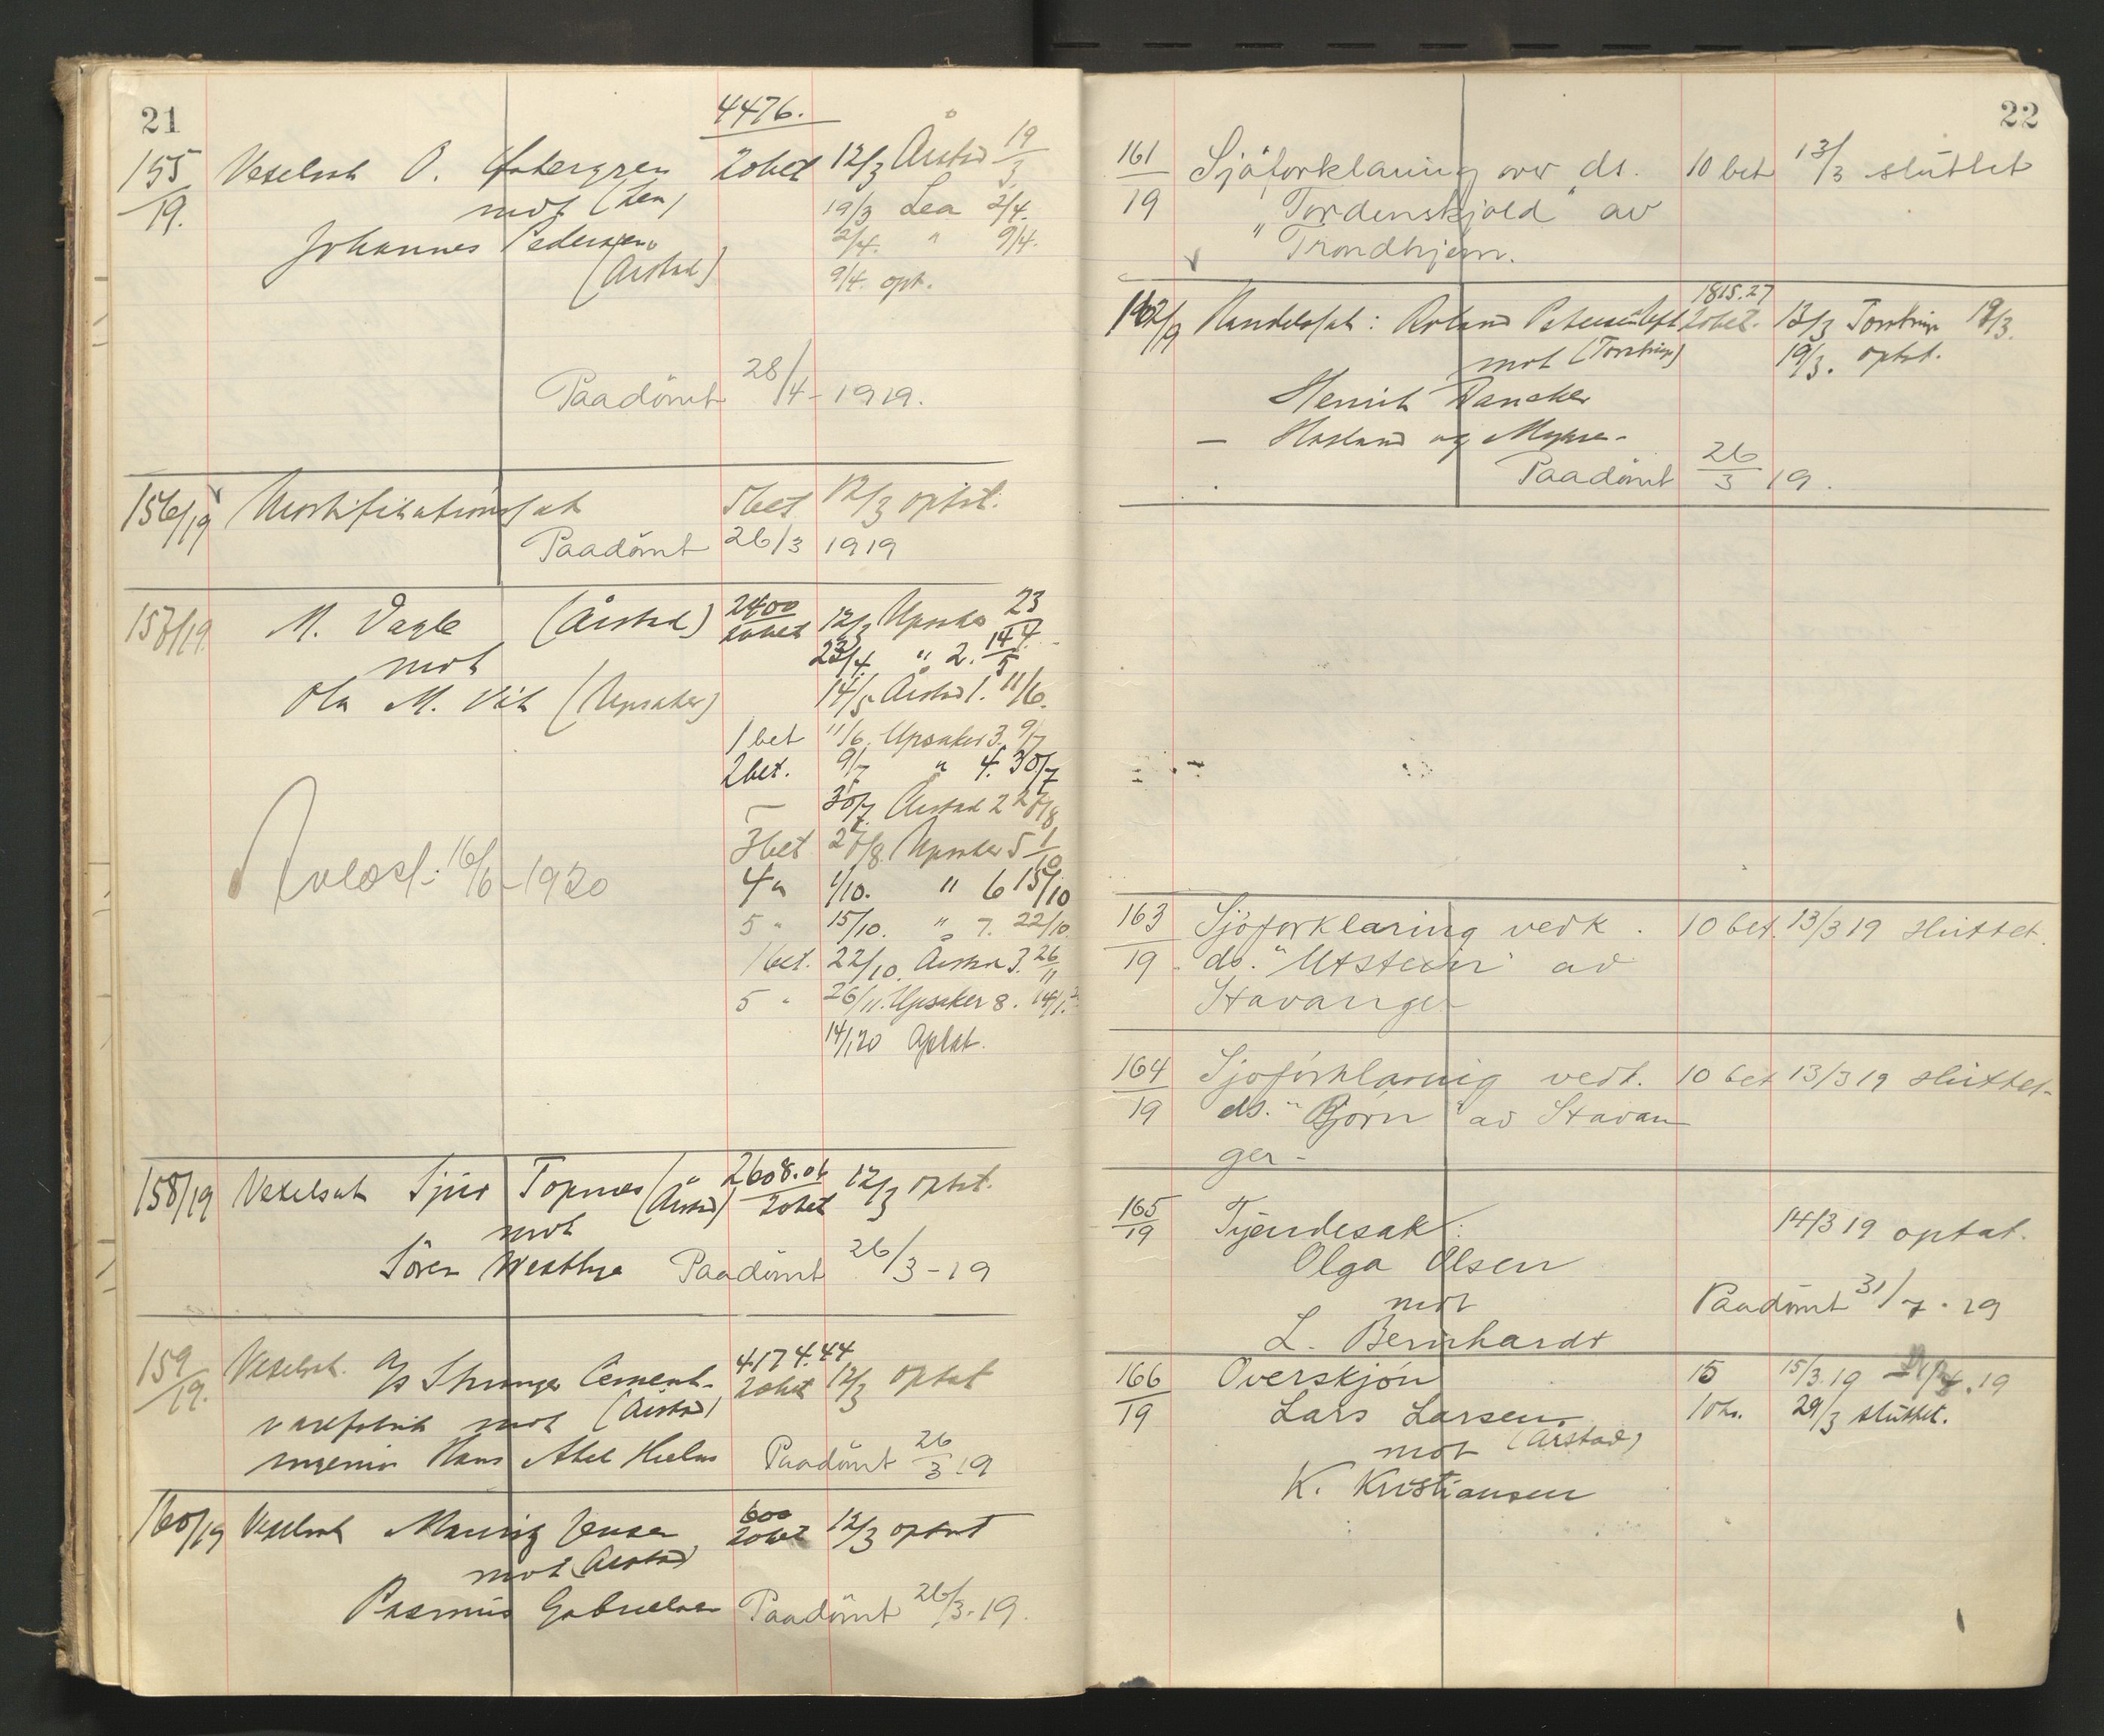 21
4476.
155/19. Vexelsak O. Østergren 20 bet 12/3 Årstad 19/3
mot (Lea) 19/3 Lea 2/4.
Johannes Pedersen 2/4. " 9/4.
(Årstad) 9/4. opt.
Paadömt 28/4-1919.
156/19 Mortifikationssak 5 bet 12/3 optat.
Paadömt 26/3 1919
157/19. M. Vagle (Årstad) 2400 20 bet 12/3 Upsaker 23/4
mot 23/4. " 2. 14/5
Ola M. Vik (Upsaker) 14/5 Årstad 1. 11/6.
1 bet 11/6. Upsaker 3. 9/7
2 bet. 9/7 " 4. 30/7
— 30/7 Årstad 2 27/8
3 bet 27/8. Upsaker 5 1/10
4 " 1/10. " 6 15/10
5 " 15/10. " 7. 22/10.
1 bet. 22/10. Årstad 3. 26/11
5 " 26/11. Upsaker 8. 14/1.
14/1 20 Optat.
16/6-1920
158/19 Vexelsak Sjur Topnes (Årstad) 2608.06 20 bet 12/3 optat.
mot
Sören Westbye Paadömt 26/3-19
159/19. Vexelsak. A/S Stavanger Cement- 4174.44 20 bet 12/3 optat
varefabrik mot (Årstad)
ingeniör Hans Abel Hielm Paadömt 26/3 19
160/19 Vexelsak Mauritz Jensen 600 20 bet 12/3 optat
mot (Årstad)
Rasmus Gabrielsen Paadömt 26/3-19.
22
161/19 Sjöforklaring over ds. 10 bet 13/3 sluttet
"Tordenskjold" av
Trondhjem.
162/19 Handelssak: Erland Petersen Eeft 1815.27 20 bet. 12/3 Torstrup 19/3.
mot (Torstrup) 19/3. optat.
Henrik Dancker
— Hasland og
Paadömt 26/3 19.
163/19 Sjöforklaring vedk. 10 bet. 13/3 19 sluttet.
ds. "Utstein" av
Stavanger
164/19 Sjöforklaring vedk. 10 bet 13/3 19 sluttet-
ds. "Björn" av Stavan
ger-
165/19 Tjendesak: 14/3 19 optat.
Olga Olsen
mot Paadömt 31/7-19
L. Bernhardt
166/19 Overskjön 15 15/3.19
Lars Larsen. 10 kr. 29/3 sluttet.
mot (Årstad)
K. Kristiansen